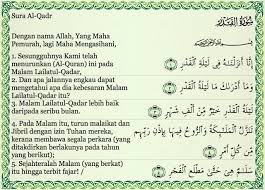 Sura Al-Qadr
سُورَةُ الْقَدْرِ
Dengan nama Allah, Yang Maha
Pemurah, lagi Maha Mengasihani,
1. Sesungguhnya Kami telah
menurunkan (Al-Quran) ini pada
Malam Lailatul-Qadar,
2. Dan apa jalannya engkau dapat
mengetahui apa dia kebesaran Malam
Lailatul-Qadar itu?
3. Malam Lailatul-Qadar lebih baik
daripada seribu bulan.
4. Pada Malam itu, turun malaikat dan
Jibril dengan izin Tuhan mereka,
kerana membawa segala perkara (yang
ditakdirkan berlakunya pada tahun
yang berikut);
5. Sejahteralah Malam (yang berkat)
itu hingga terbit fajar! /
إِنَّا أَنزَلْنَاهُ فِي لَيْلَةِ الْقَدْرِ
وَمَا أَدْرَاكَ مَا لَيْلَةُ الْقَدْرِ
لَيْلَةُ الْقَدْرِ خَيْرٌ مِّنْ أَلْفِ شَهْرٍ
تَنَزَّلُ الْمَلَائِكَةُ وَالرُّوحُ فِيهَا بِإِذْنِ رَبِّهِم
مِّن كُلِّ أَمْرٍ
سَلَامٌ هِيَ حَتَّىٰ مَطْلَعِ الْفَجْرِ